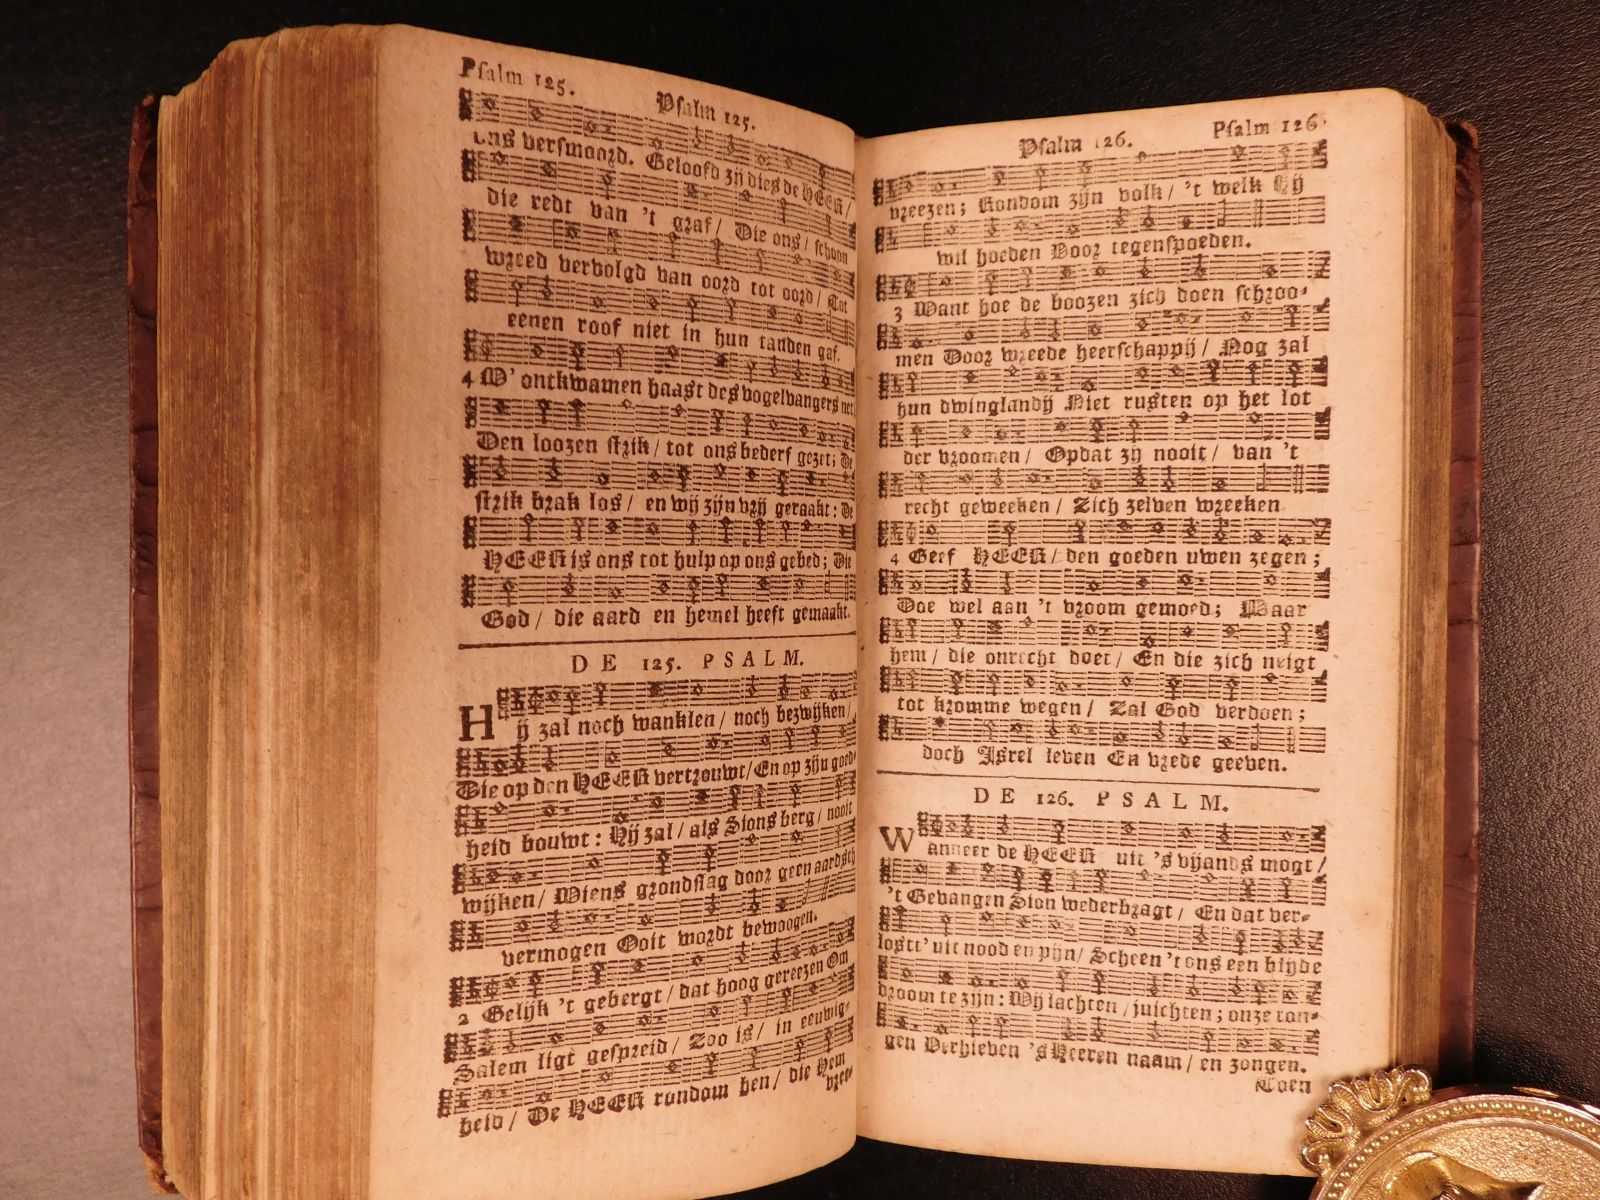 Psalm 125.
Psalm 125.
ons versmoord. Geloofd zij dies de HEER/
die redt van 't graf/ Die ons/ schoon
wreed vervolgd van oord tot oord/ Tot
eenen roof niet in hun tanden gaf.
4 W' ontkwamen haast des vogelvangers net
Den loozen strik/ tot ons bederf gezet; De
strik brak los/ en wij zijn vrij geraakt: De
HEER is ons tot hulp op ons gebed; Die
God/ die aard en hemel heeft gemaakt.
DE 125. PSALM.
Hij zal noch wanklen/ noch bezwijken/
Die op den HEER vertrouwt/ En op zijn goed-
heid bouwt: Hij zal/ als Sions berg/ nooit
wijken/ Wiens grondslag door geen aardsch
vermogen Ooit wordt bewoogen.
2 Gelijk 't gebergt/ dat hoog gereezen Om
Salem ligt gespreid/ Zoo is/ in eeuwig-
heid/ De HEER rondom hen/ die hem
vree-
Psalm 126.
Psalm 126
vreezen; Rondom zijn volk/ 't welk Hij
wil hoeden Voor tegenspoeden.
3 Want hoe de boozen zich doen schroo-
men Door wreede heerschappij/ Nog zal
hun dwinglandij Niet rusten op het lot
der vroomen/ Opdat zij nooit/ van 't
recht geweeken/ Zich zelven wreeken
4 Geef HEER/ den goeden uwen zegen;
Doe wel aan 't vroom gemoed; Maar
hem/ die onrecht doet/ En die zich neigt
tot kromme wegen/ Zal God verdoen;
doch Isrel leven En vrede geeven.
DE 126. PSALM.
Wanneer de HEER uit 's vijands mogt/
't Gevangen Sion wederbragt/ En dat ver-
lostt' uit nood en pijn/ Scheen 't ons een blijde
droom te zijn: Wij lachten/ juichten; onze ton-
gen Verhieven 's Heeren naam/ en zongen.
Toen